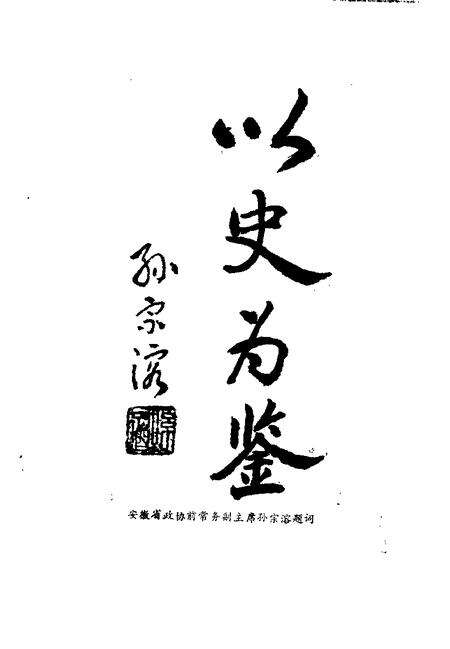 以史为鉴
孙宗溶
安徽省政协前常务副主席孙宗溶题词